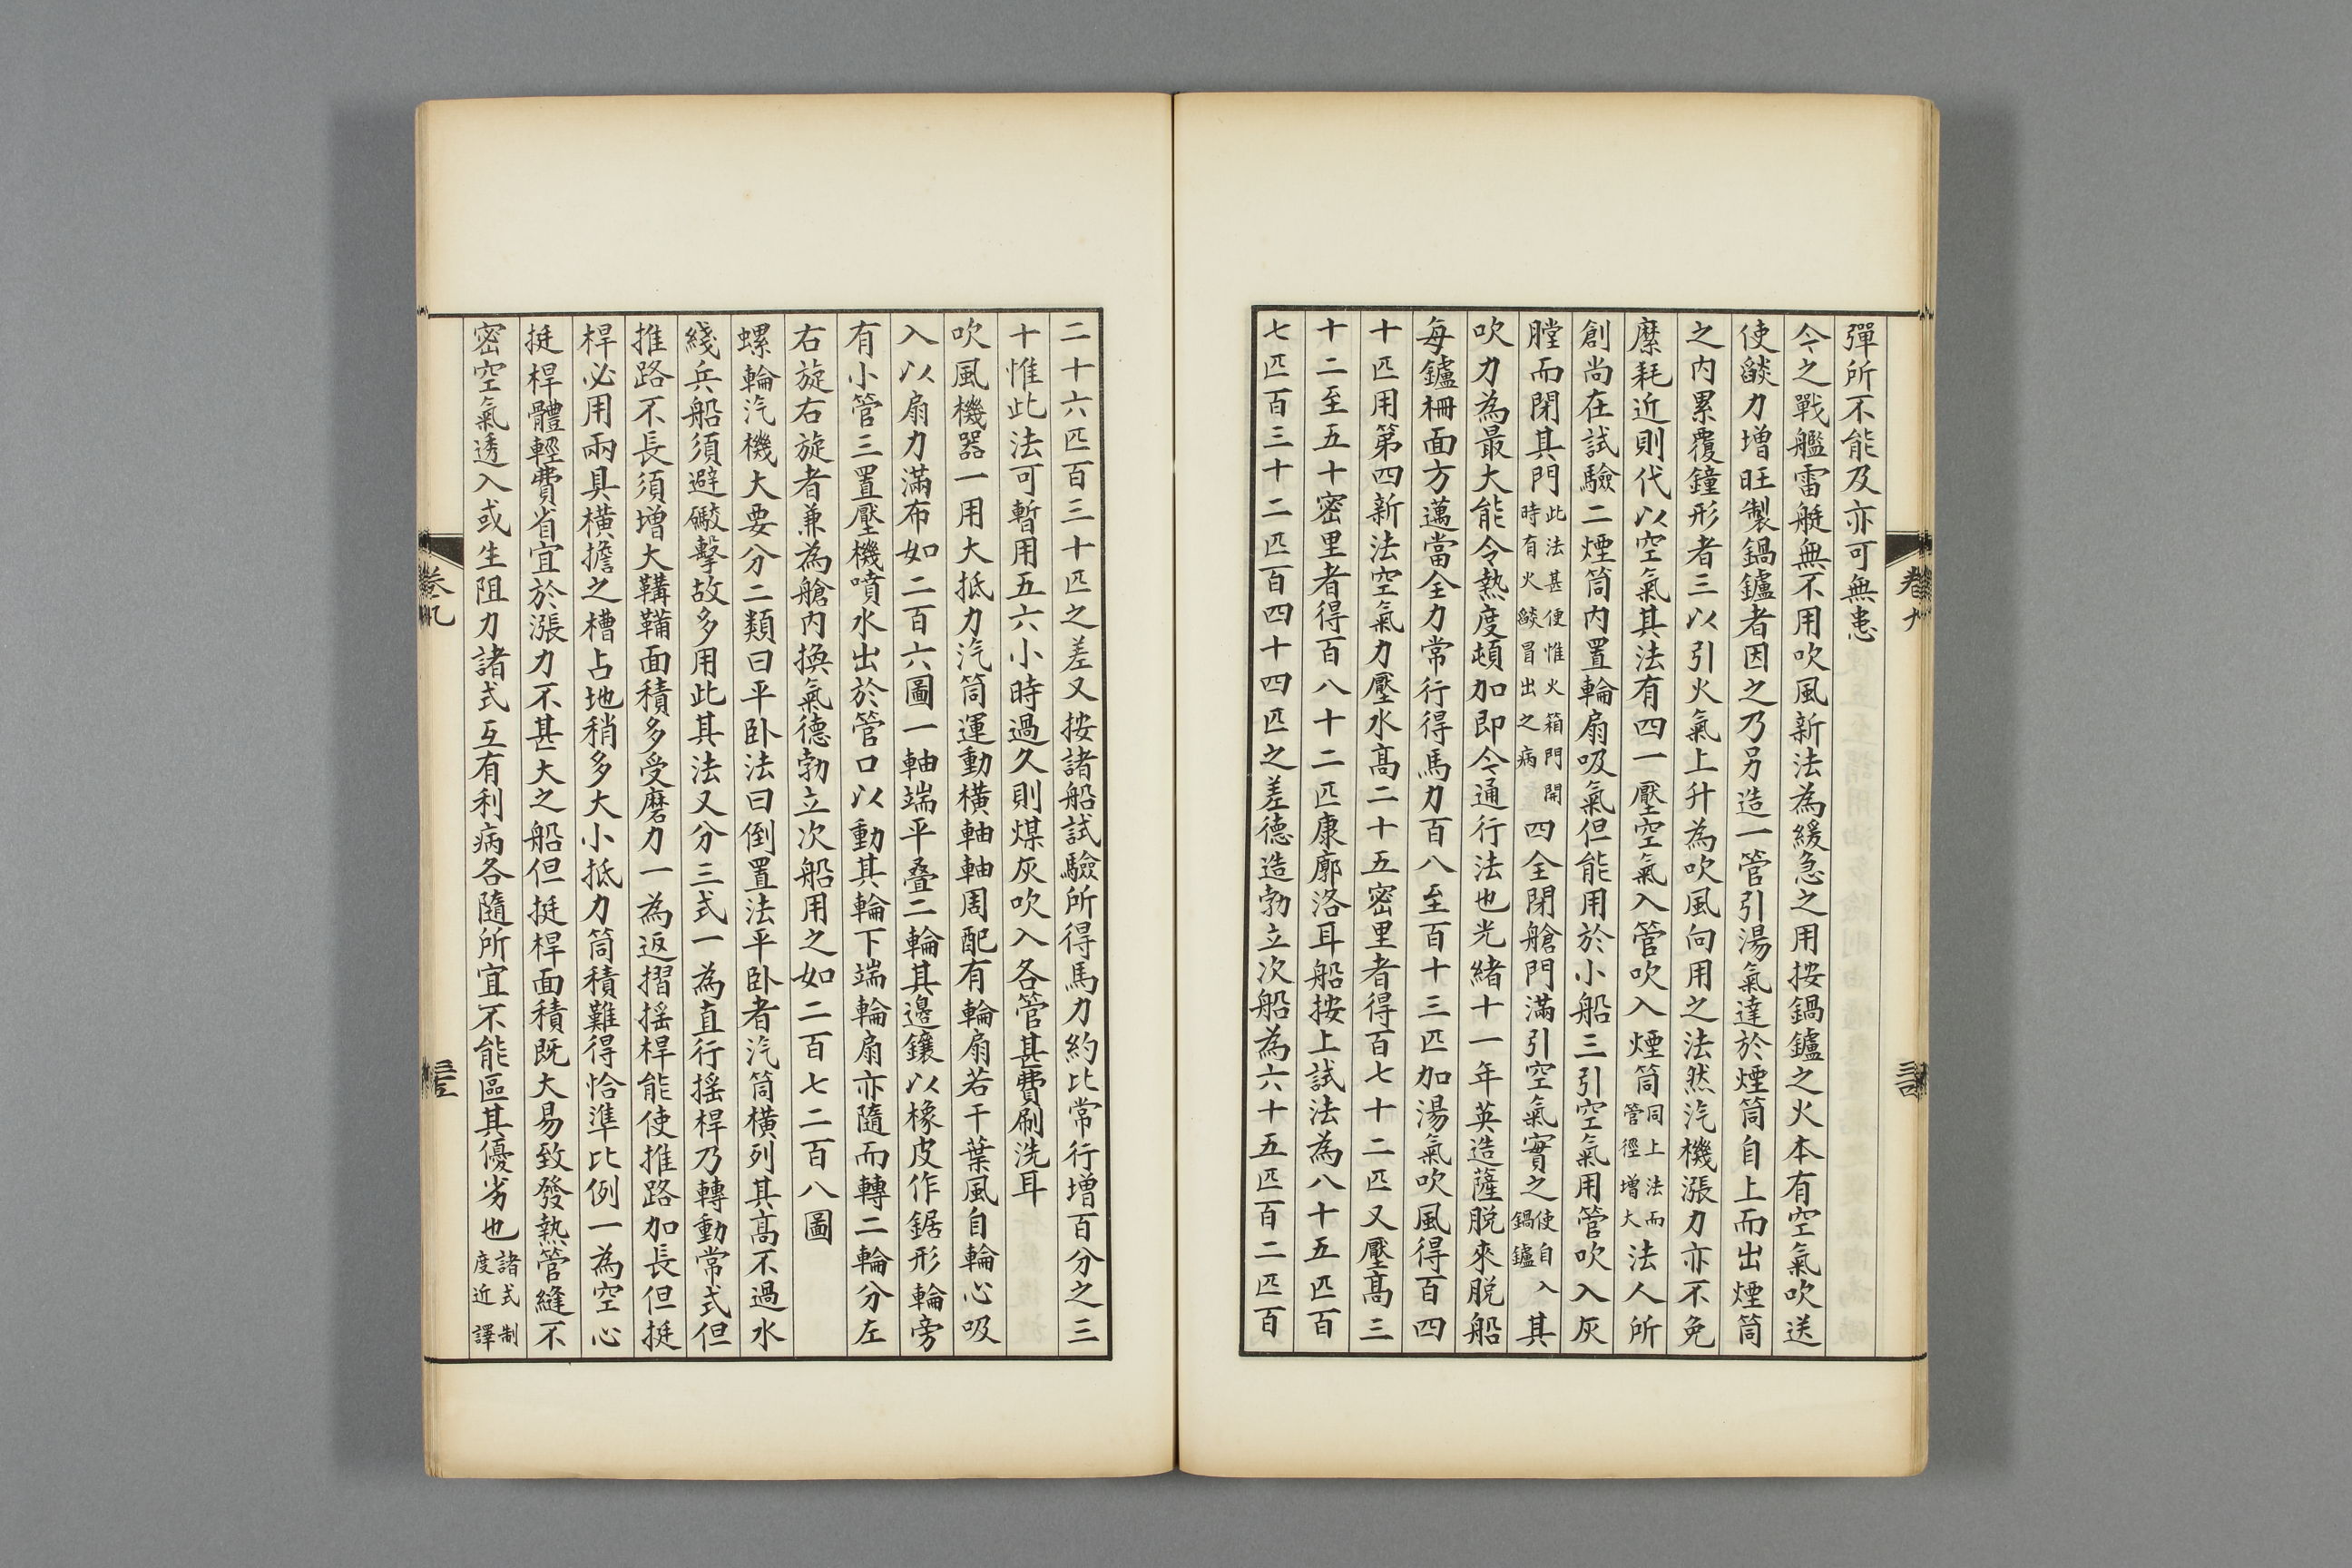 彈所不能及亦可無恚
今之戰艦雷艇無不用吹風新法為緩急之用按鍋鑪之火本有空氣吹送
使燄力增旺製鍋鑪者因之乃另造一管引湯氣達於煙筒自上而出煙筒
之內累覆鐘形者三以引火氣上升為吹風向用之法然汽機漲力亦不免
縻耗近則代以空氣其法有四一壓空氣入管吹入煙筒同上法而管徑增大法人所
創尚在試驗二煙筒內置輪扇吸氣但能用於小船三引空氣用管吹入灰
膛而閉其門此法甚便惟火箱門開時有火燄冒出之病四全閉艙門滿引空氣實之使自入鍋鑪其
吹力為最大能令熱度頓加即令通行法也光緒十一年英造薩脫來脫船
每鑪柵面方邁當全力常行得馬力百八至百十三匹加湯氣吹風得百四
十匹用第四新法空氣力壓水高二十五密里者得百七十二匹又壓高三
十二至五十密里者得百八十二匹康廓洛耳船按上試法為八十五匹百
七匹百三十二匹百四十四匹之差德造勃立次船為六十五匹百二匹百
卷九
三四
二十六匹百三十匹之差又按諸船試驗所得馬力約比常行增百分之三
十惟此法可暫用五六小時過久則煤灰吹入各管甚費刷洗耳
吹風機器一用大抵力汽筒運動橫軸軸周配有輪扇若干葉風自輪心吸
入以扇力滿布如二百六圖一軸端平叠二輪其邊鑲以橡皮作鋸形輪旁
有小管三置壓機噴水出於管口以動其輪下端輪扇亦隨而轉二輪分左
右旋右旋者兼為艙內換氣德勃立次船用之如二百七二百八圖
螺輪汽機大要分二類曰平臥法曰倒置法平臥者汽筒橫列其高不過水
綫兵船須避礮擊故多用此其法又分三式一為直行搖桿乃轉動常式但
推路不長須增大鞲鞴面積多受磨力一為返摺搖桿能使推路加長但挺
桿必用兩具橫擔之槽占地稍多大小抵力筒積難得恰準比例一為空心
挺桿體輕費省宜於漲力不甚大之船但挺桿面積既大易致發熱管縫不
密空氣透入或生阻力諸式互有利病各隨所宜不能區其優劣也諸式制度近譯
卷九
三五